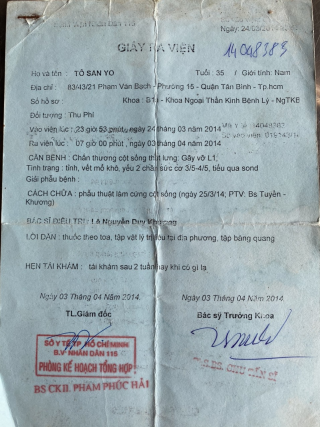 Ngày: 24/03/
GIẤY RA VIỆN
14048383
Họ và tên : TÔ SAN YO Tuổi : 35 / Giới tính: Nam
Địa chỉ : 83/43/21 Phạm Văn Bạch - Phường 15 - Quận Tân Bình - Tp.hcm
Số hồ sơ Khoa : - Khoa Ngoại Thần Kinh Bệnh Lý - NgTKB
Đối tượng : Thu Phí
Vào viện lúc : 23 giờ 53 phút, ngày 24 tháng 03 năm 2014
Ra viện lúc : 07 giờ 00 phút , ngày 03 tháng 04 năm 2014
CĂN BỆNH : Chấn thương cột sống thắt lưng: Gãy vỡ L1;
Tình trạng : tỉnh, vết mổ khô, yếu 2 chân sức cơ 3/5-4/5, tiểu qua sond
Giải phẫu bệnh :
CÁCH CHỮA : phẫu thuật làm cứng cột sống (ngày 25/3/14; PTV: Bs Tuyên -
Khương)
BÁC SĨ ĐIỀU TRỊ : Lê Nguyễn Duy Khương
LỜI DẶN : thuốc theo toa, tập vật lý trị liệu tại địa phương, tập bàng quang
HẸN TÁI KHÁM : tái khám sau 2 tuần hay khi có gì lạ
Ngày 03 Tháng 04 Năm 2014 Ngày 03 Tháng 04 Năm 2014
TL.Giám đốc Bác sỹ Trưởng Khoa
SỞ Y TẾ TP HỒ CHÍ MINH
B.V NHÂN DÂN 115
PHÒNG KẾ HOẠCH TỔNG HỢP
BS CKII. PHẠM PHÚC HẢI